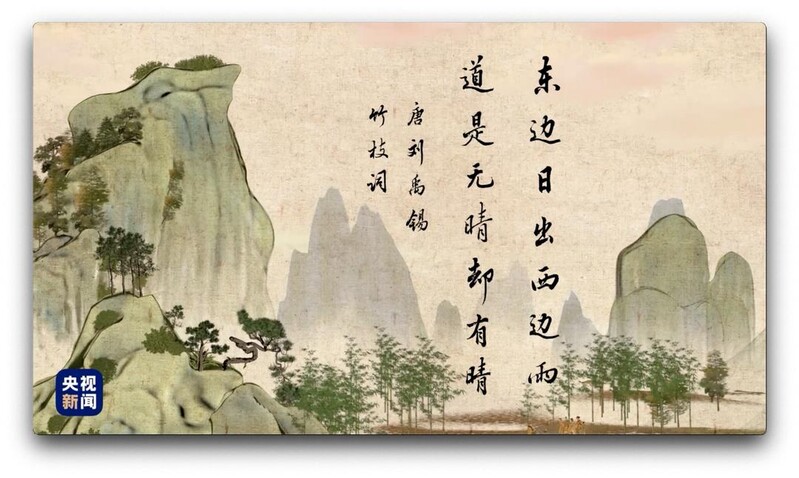 东边日出西边雨
道是无晴却有晴
唐刘禹锡
竹枝词
央视
新闻